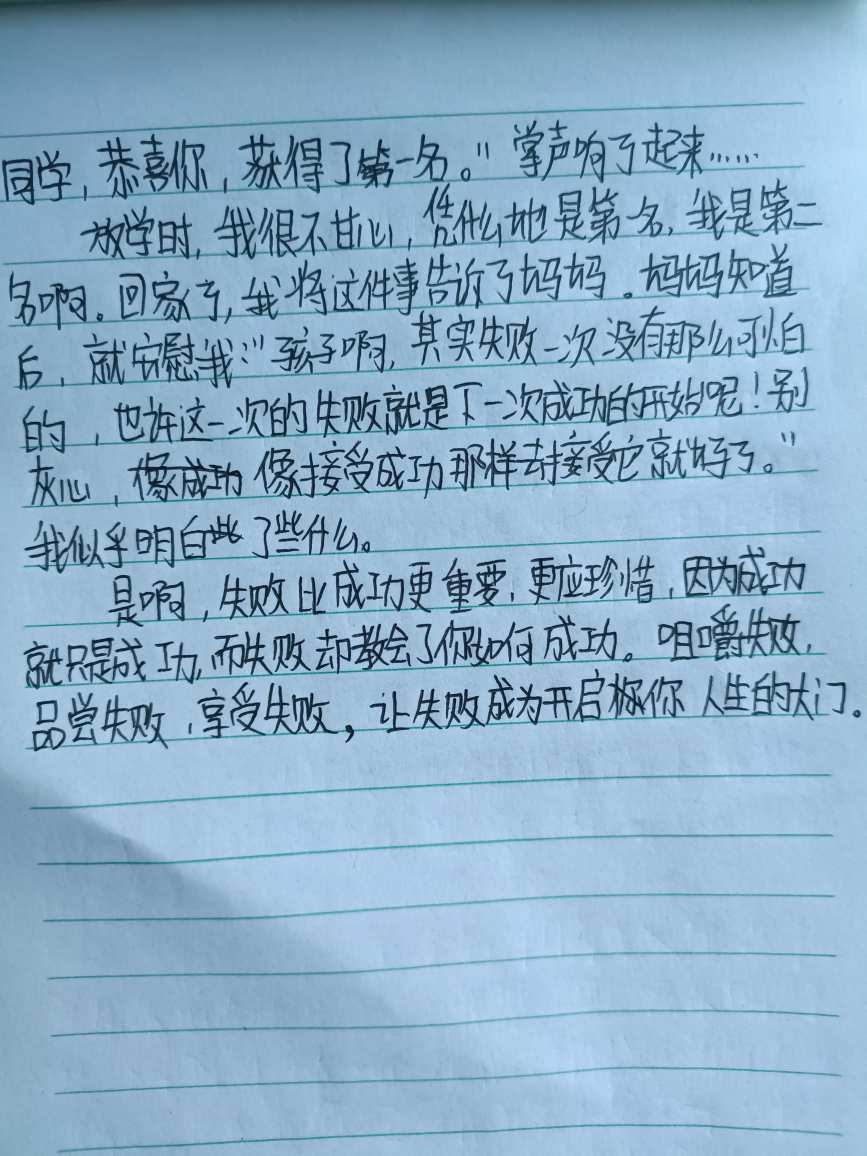 同学，恭喜你，获得了第一名。"掌声响了起来……
放学时，我很不甘心，凭什么他是第一名，我是第二
名啊。回家了，我将这件事告诉了妈妈。妈妈知道
后，就安慰我："孩子啊，其实失败一次没有那么可怕
的，也许这一次的失败就是下一次成功的开始呢！别
灰心，像接受成功那样去接受它就好了。"
我似乎明白了些什么。
是啊，失败比成功更重要，更应珍惜，因为成功
就只是成功，而失败却教会了你如何成功。咀嚼失败，
品尝失败，享受失败，让失败成为开启你人生的大门。